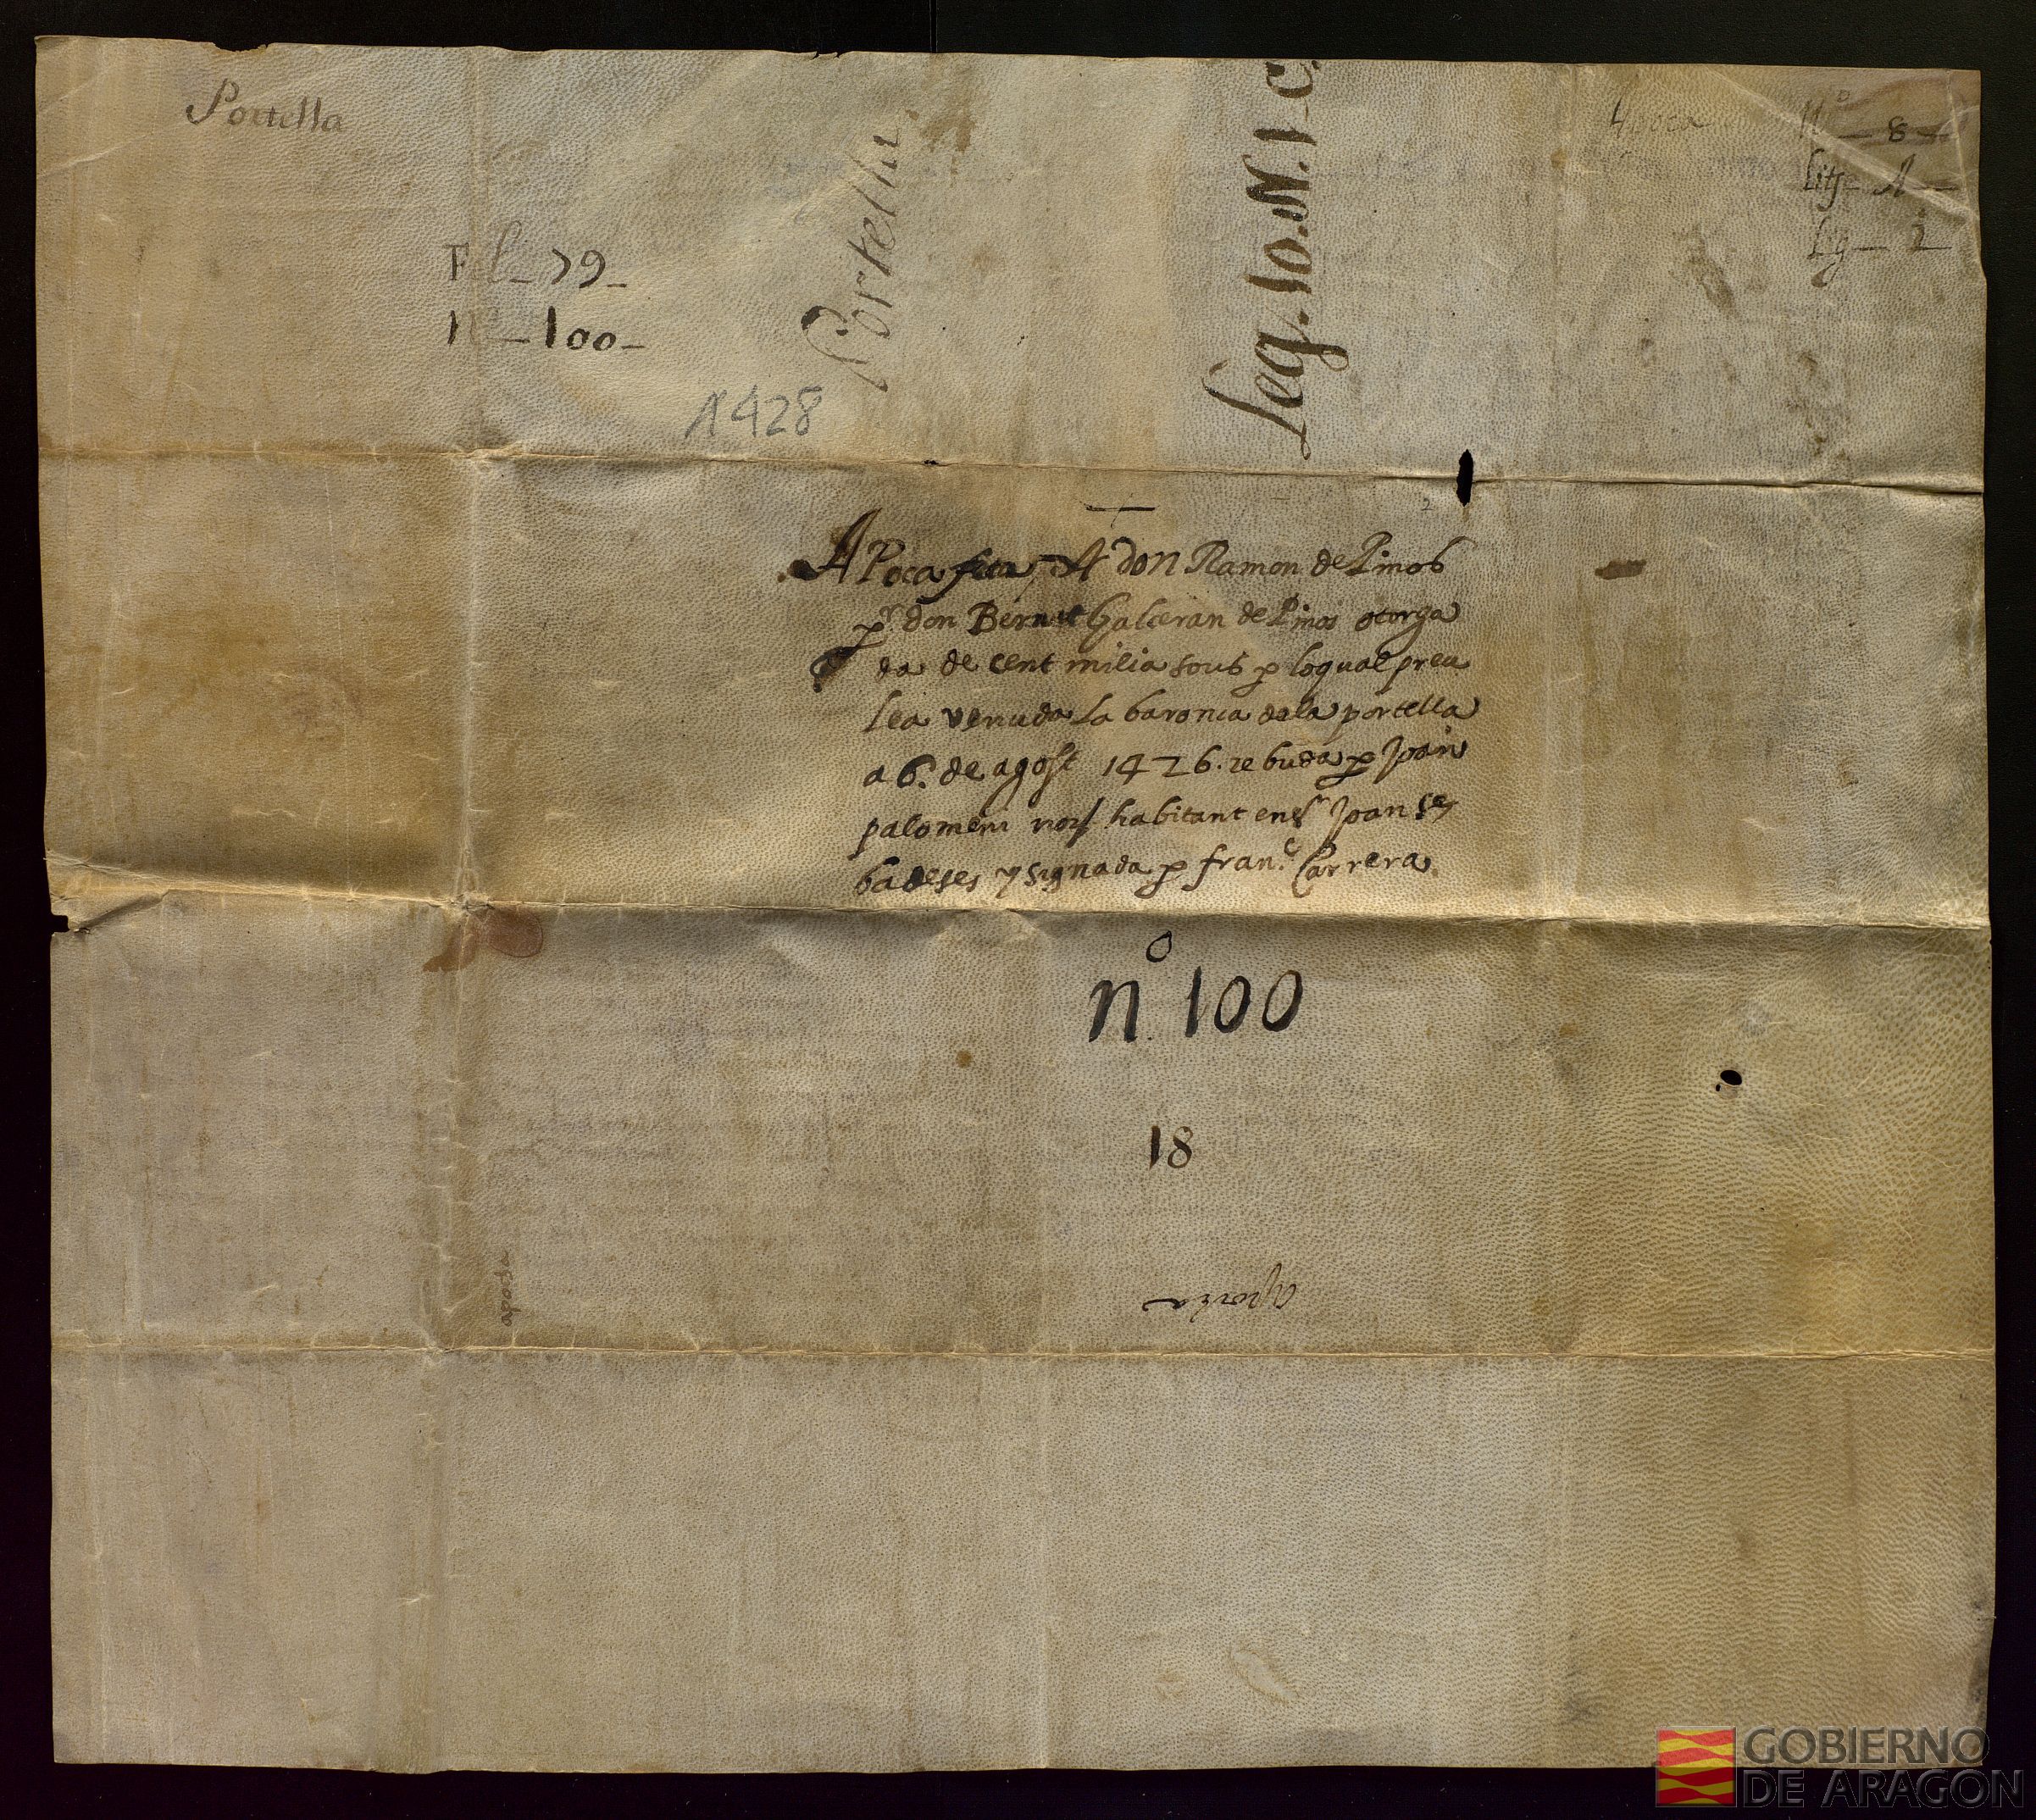 Portella
Portella
Leg. 10. N. 1 C
Apoca
N.º — 8 —
Litȷ — A —
Lig — 1
Fol — 79 —
Nº — 100 —
1428
2
APoca feta, A don Ramon de Pinos
pr don Bernat Galceran de Pinos otorga
da de cent milia sous p loqual preu
lea venuda la baronia dela portella
a 6. de agost 1426. rebuda p Joan
palomeni not habitant en St Joan Ses
badeses y signada p fran.c Carrera.
nº. 100
18
apocha
apocha
GOBIERNO
DE ARAGON